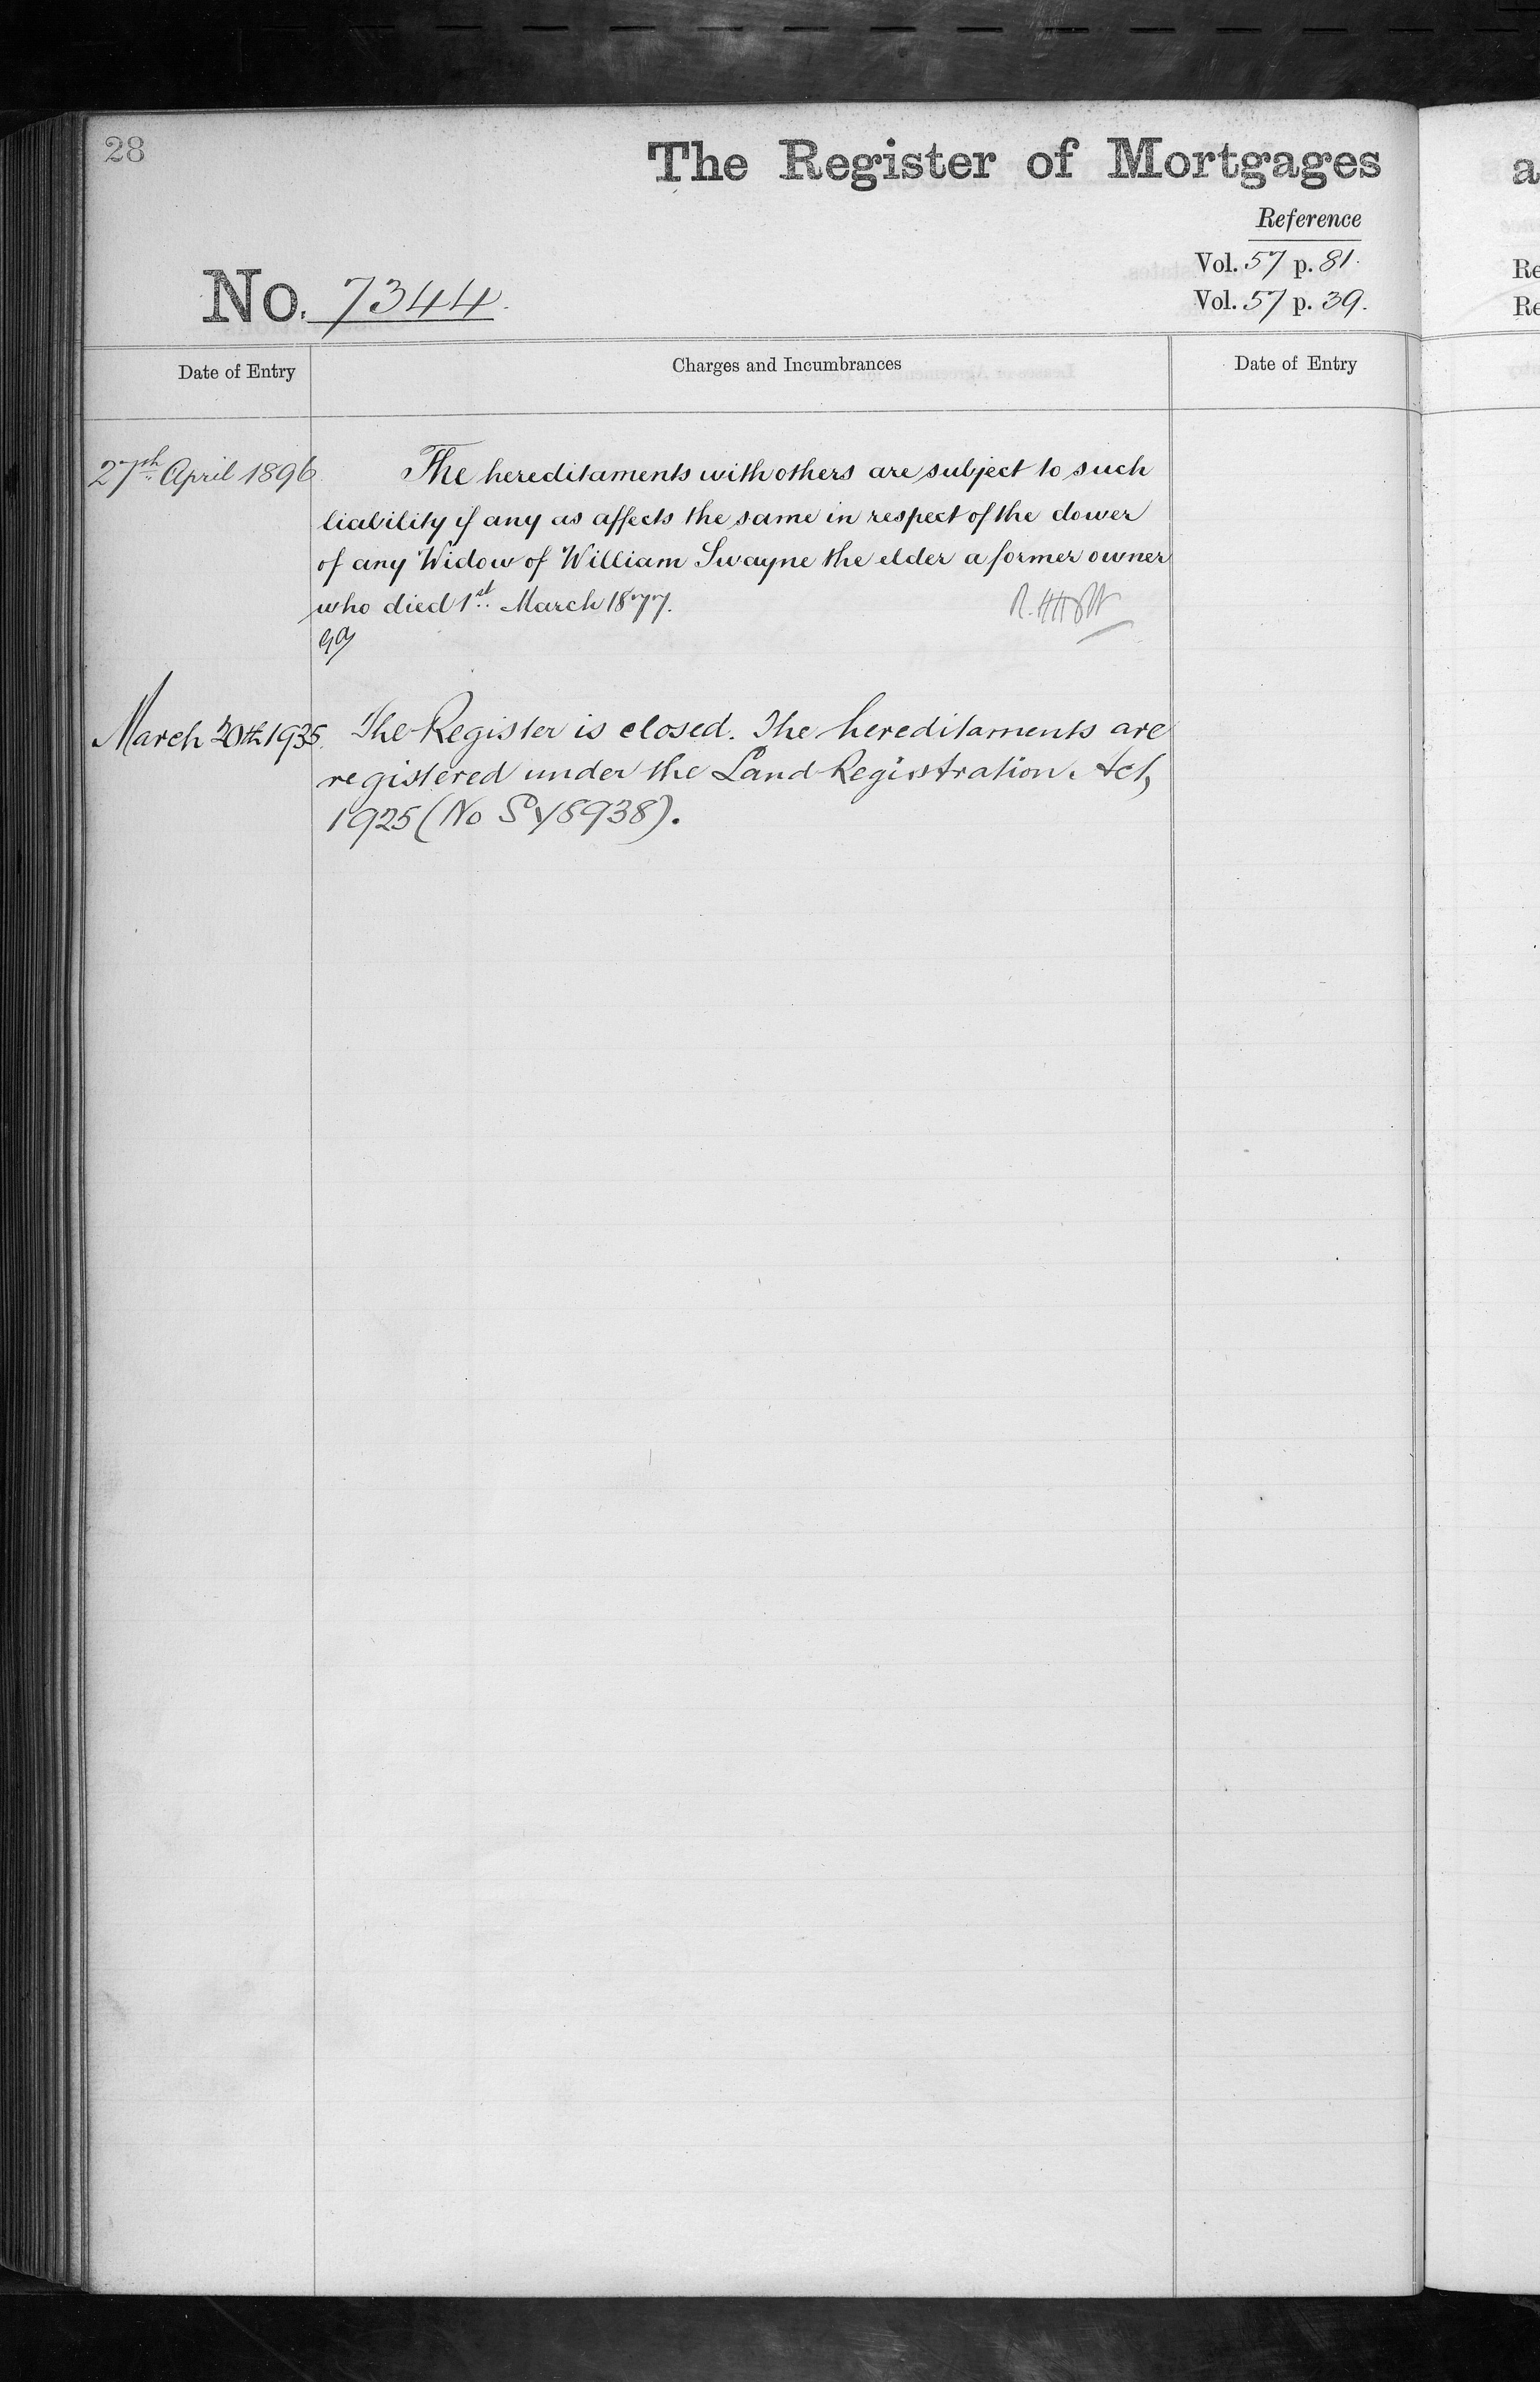 28
The Register of Mortgages
Reference
Vol. 57 p. 81.
Vol. 57 p. 39.
No. 7344.
Date of Entry
Charges and Incumbrances
Date of Entry
27th April 1896
The hereditaments with others are subject to such
liability if any as affects the same in respect of the dower
of any Widow of William Swayne the elder a former owner
who died 1st March 1877.
March 20th 1935.
The Register is closed. The hereditaments are
registered under the Land Registration Act,
1925 (No SY8938).
a
Re
Re